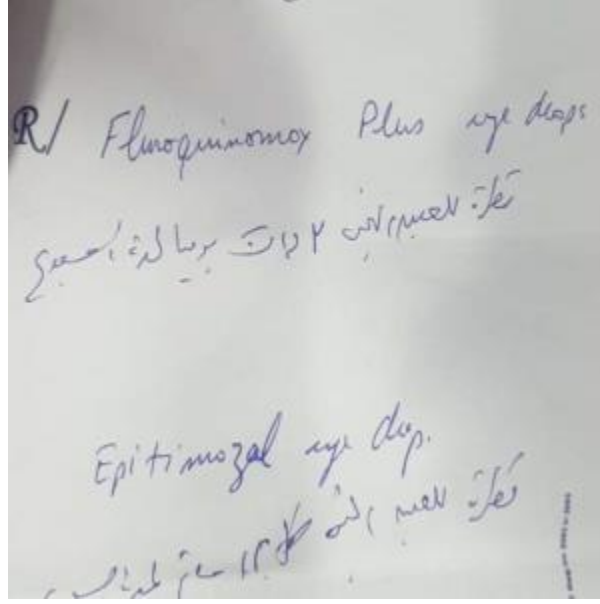 R/ Fluoroquinomox Plus eye drops
قطرة للعين اليمنى ٢ مرات يوميا لمدة اسبوع
Epitimozal eye drop.
قطرة للعين اليمنى كل ١٢ ساعة لمدة